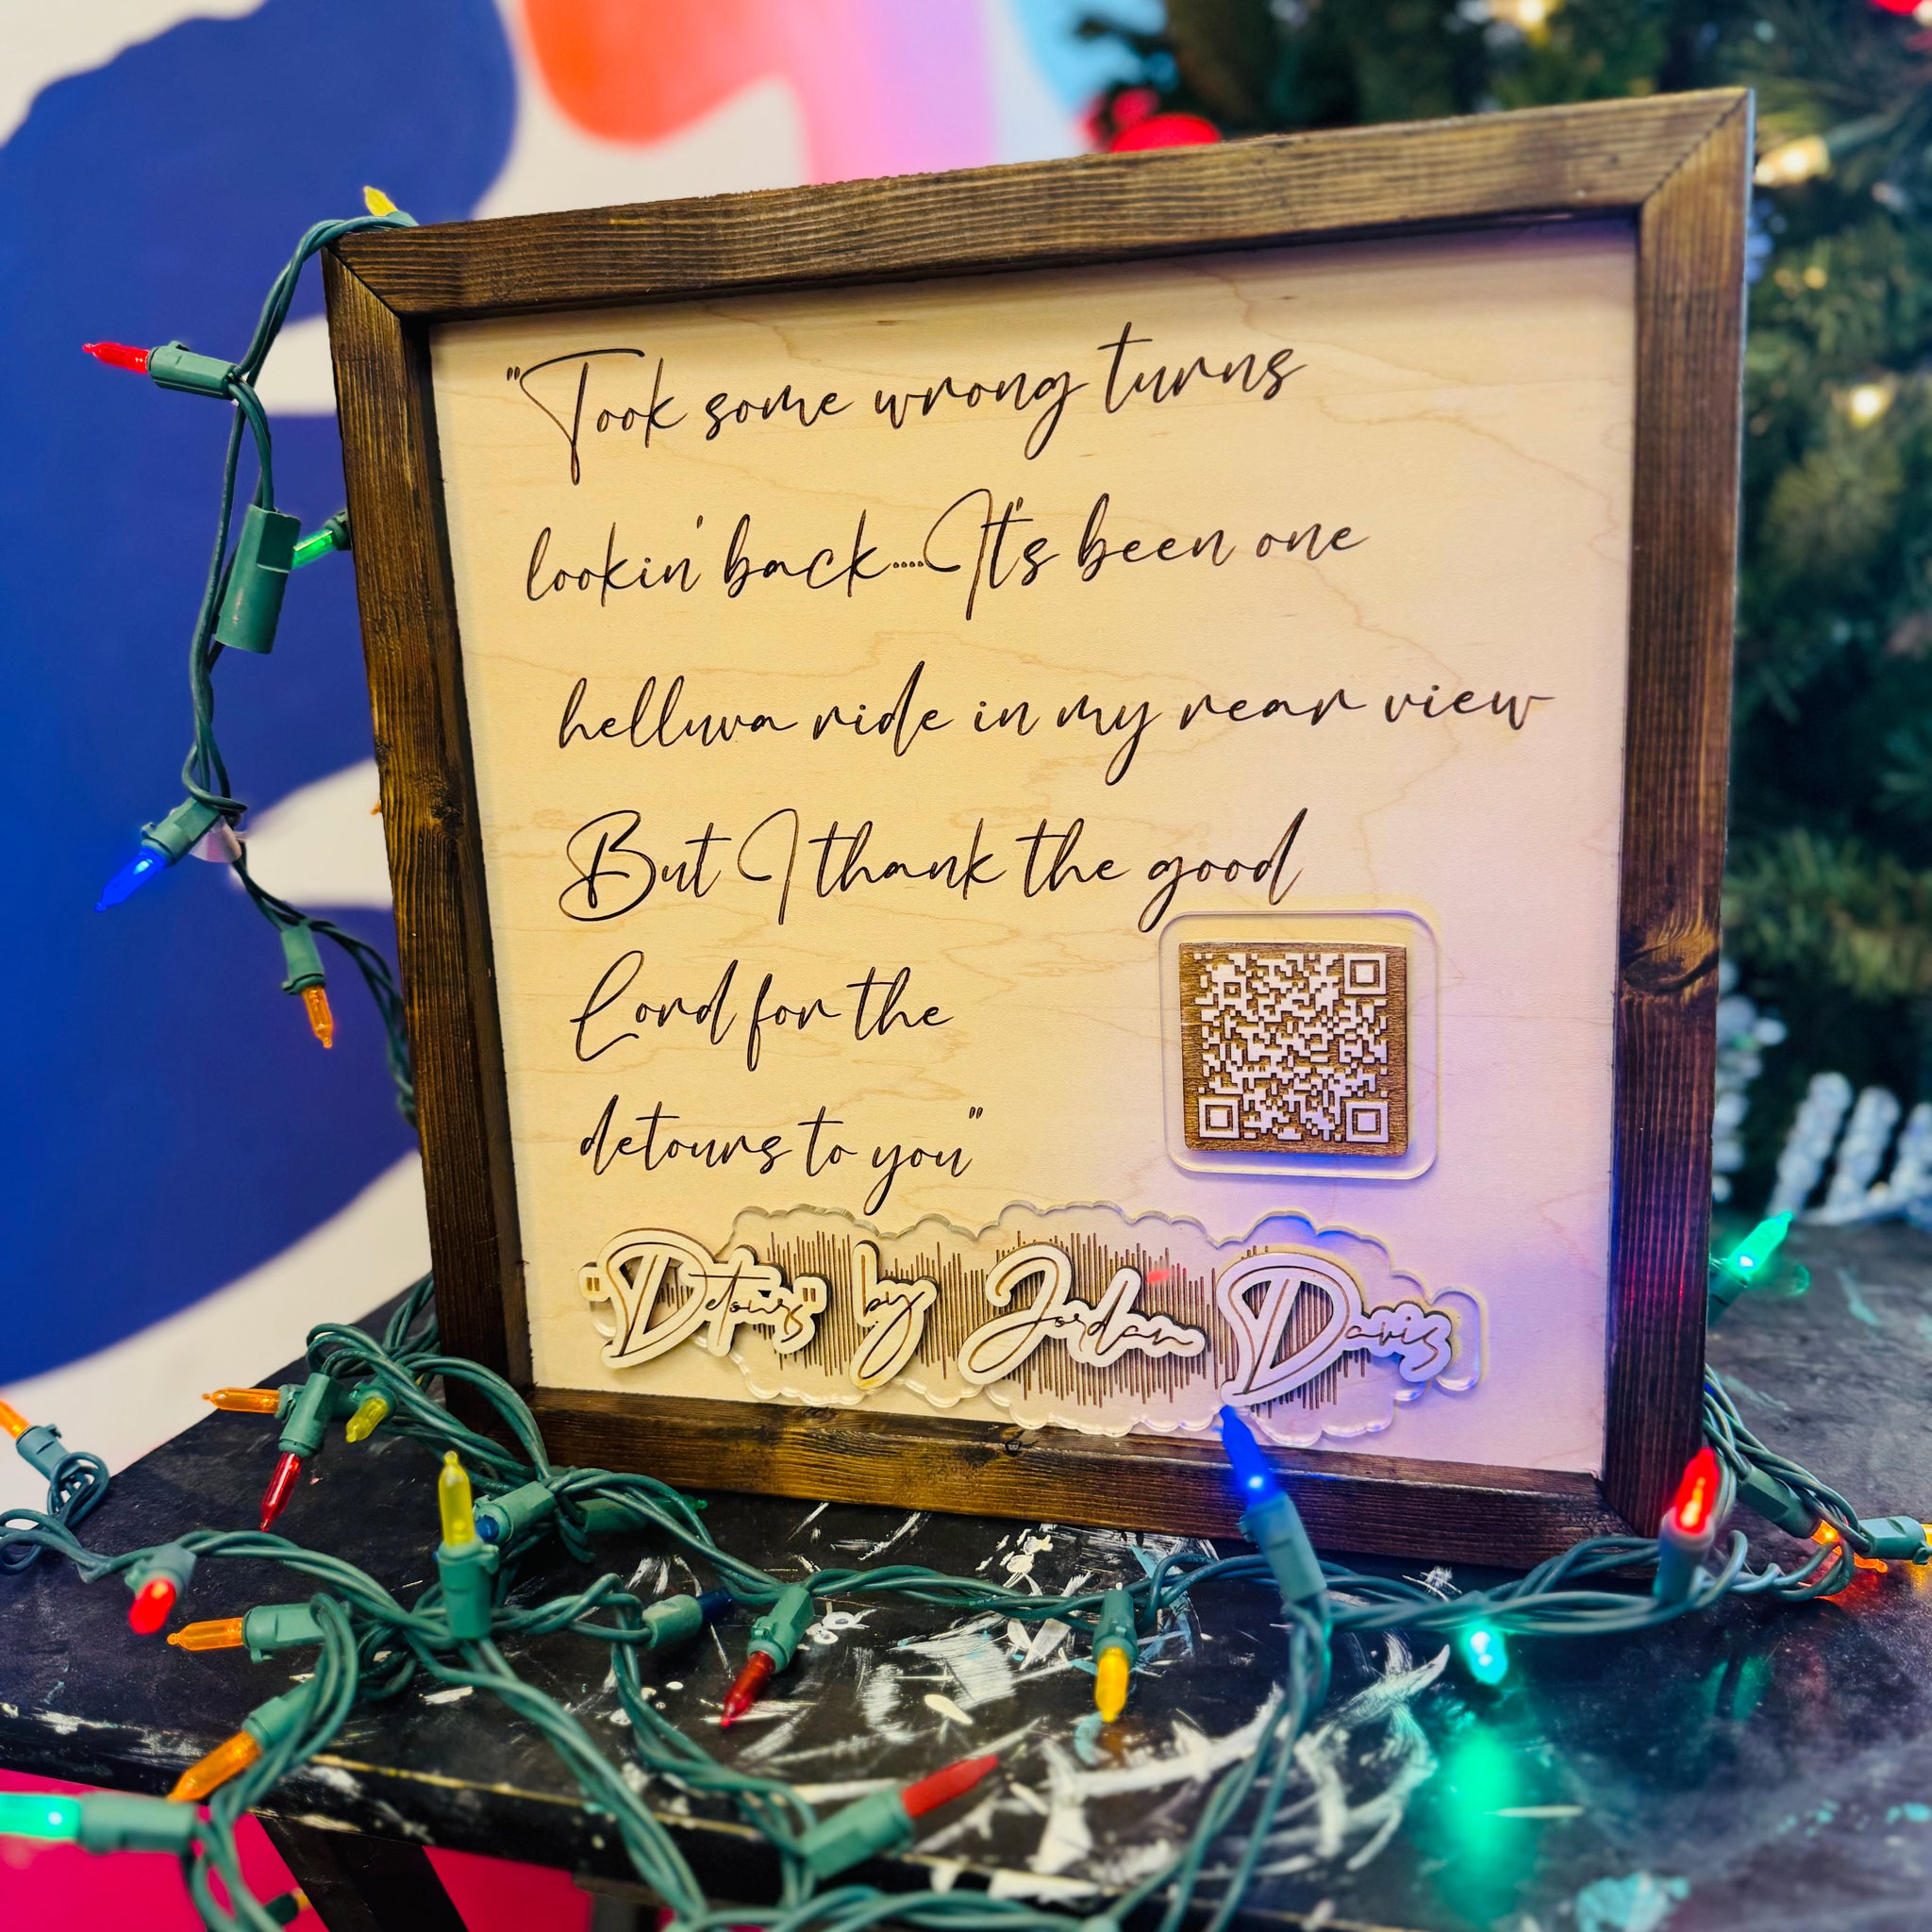 "Took some wrong turns
lookin' back....It's been one
helluva ride in my rear view
But I thank the good
Lord for the
detours to you"
"Detours" by Jordan Davis